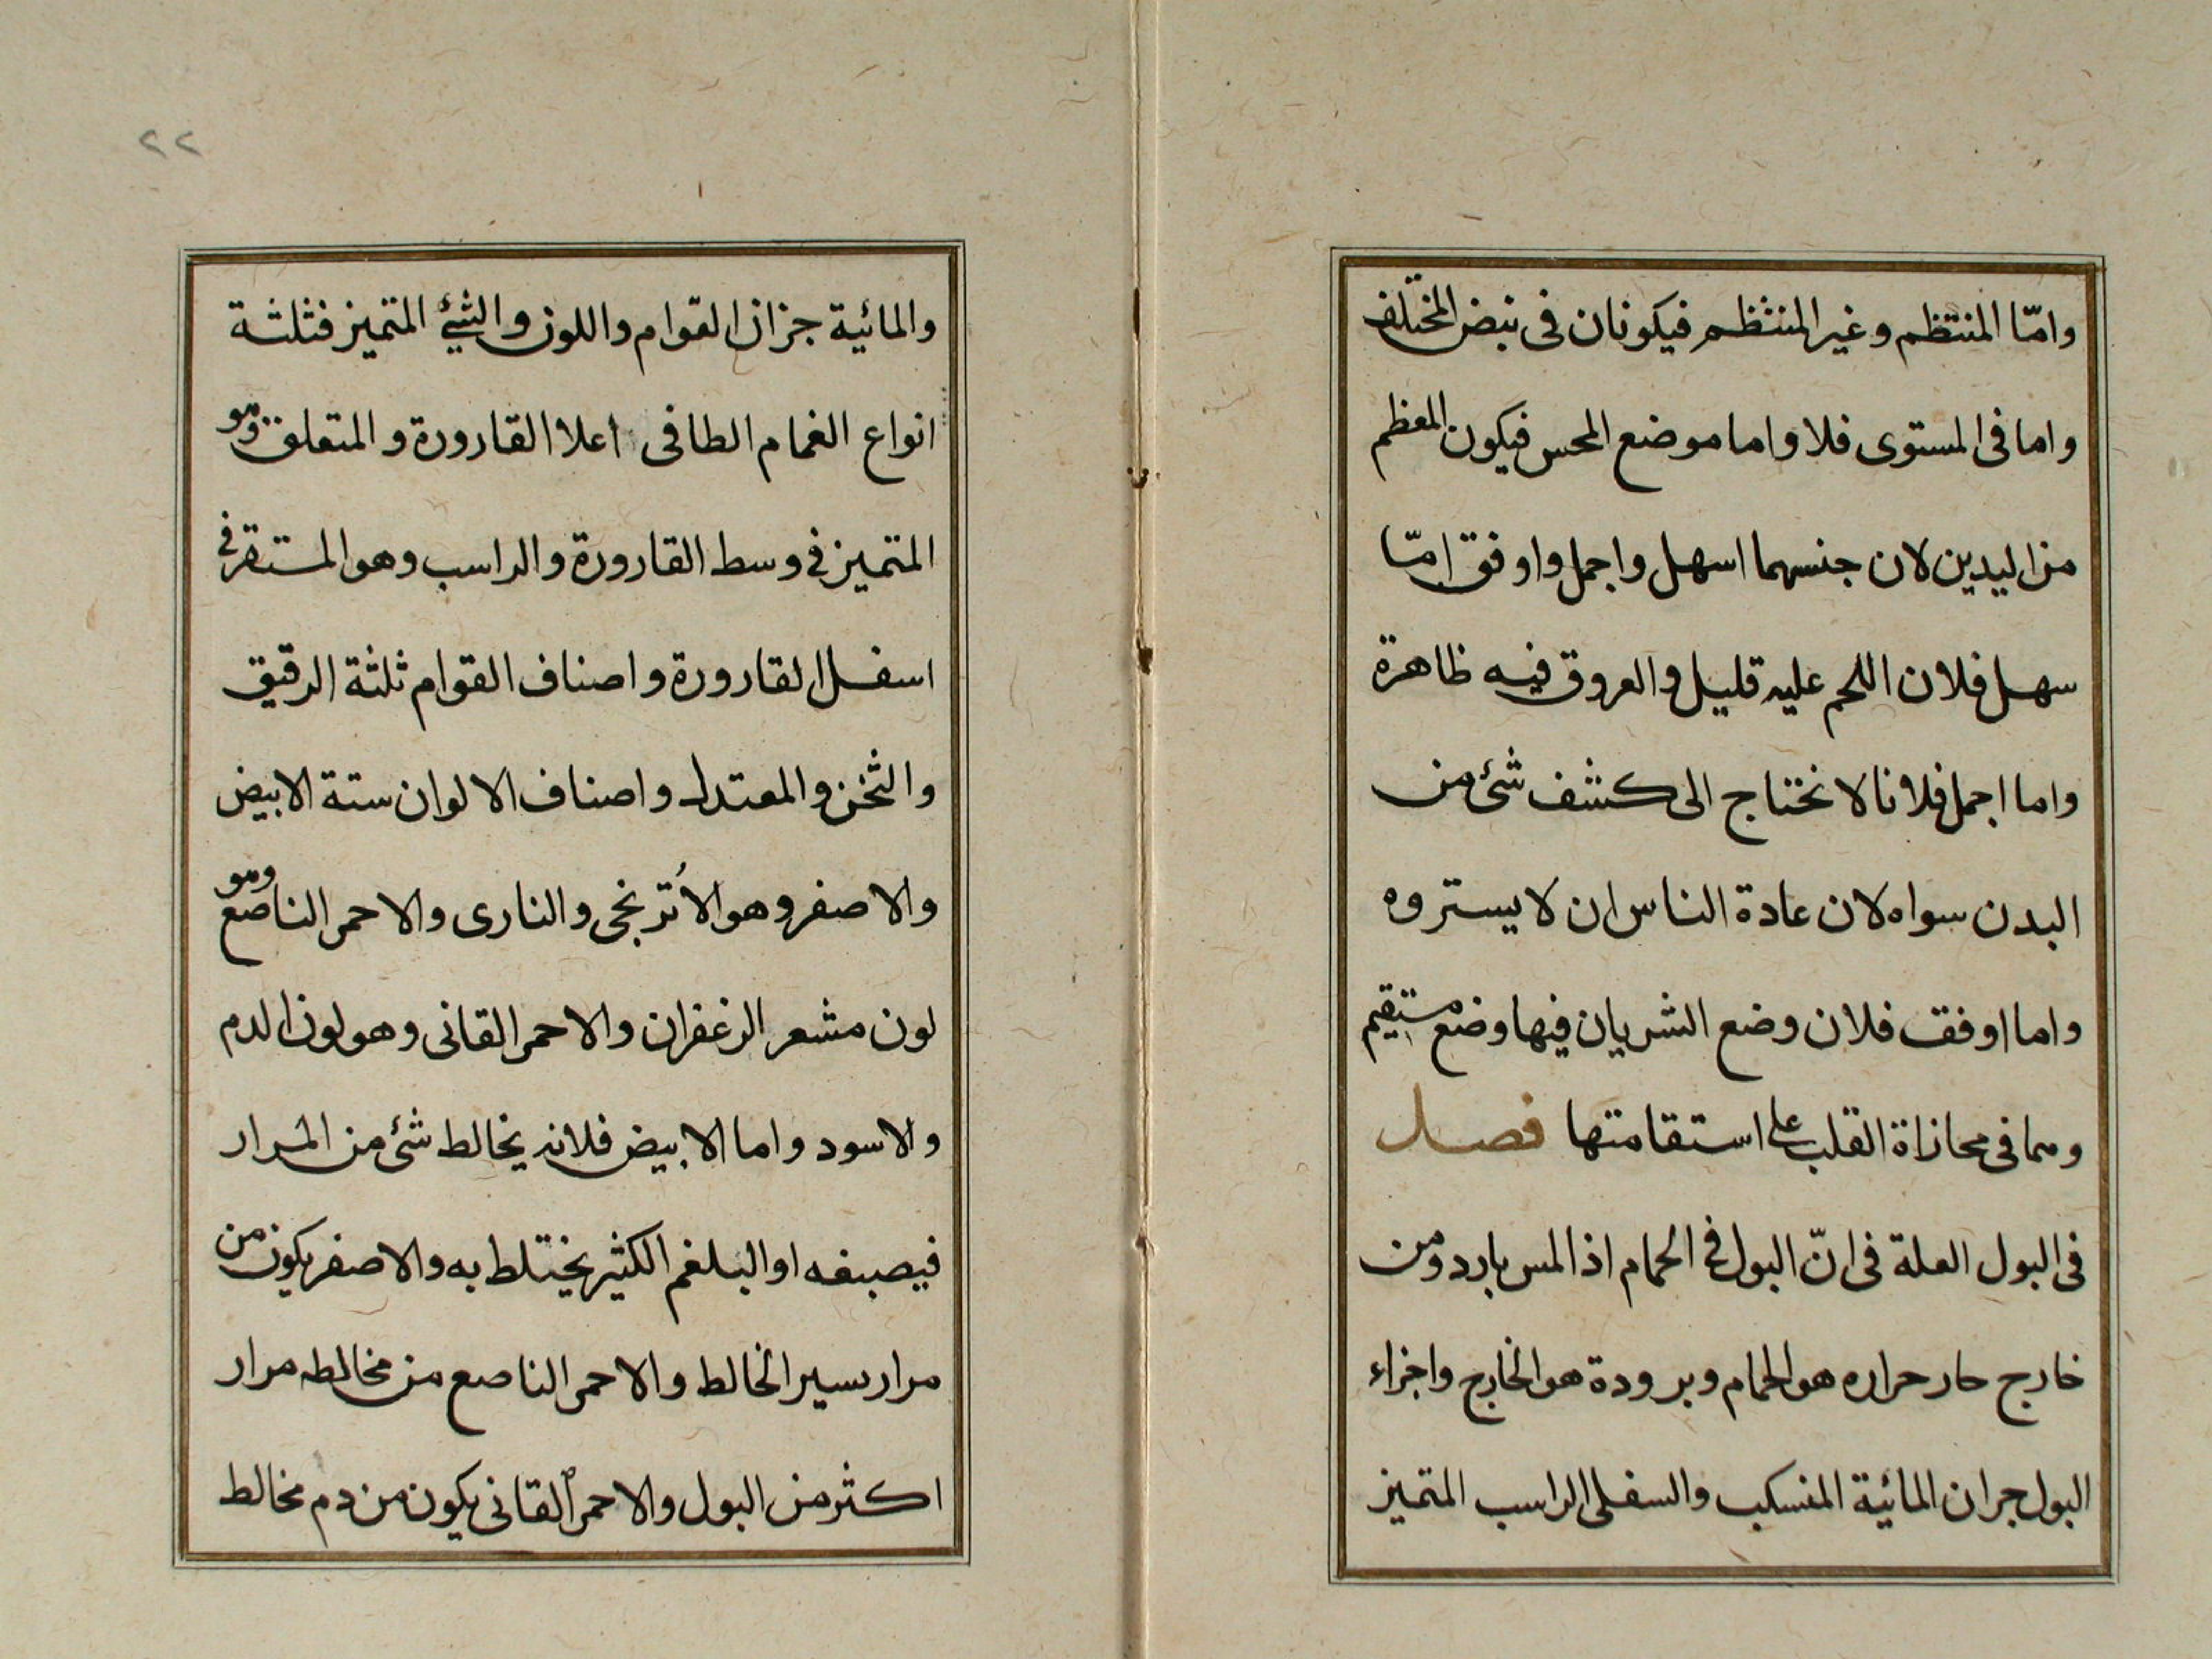 وامّا المنتظم وغير المنتظم فيكونان فى نبض المختلف
واما فى المستوى فلا واما موضع المحس فيكون المعظم
من اليدين لان جنسهما اسهل واجمل واوفق امّا
سهل فلان اللحم عليه قليل والعروق فيه ظاهرة
واما اجمل فلانا لا نحتاج الى كشف شئ من
البدن سواه لان عادة الناس ان لا يستروه
واما اوفق فلان وضع الشريان فيها وضع مستقيم
ومما فى محازاة القلب على استقامتها فصل
فى البول العلة فى انّ البول فى الحمام اذا لمس بارد ومن
خارج حار حراره هو الحمام وبرودة هو الخارج واجزاء
البول جران المائية المنسكب والسفلى الراسب المتميز
٢٢
والمائية جزان القوام واللون والشئ المتميز فثلثة
انواع الغمام الطافى اعلا القارورة والمتعلق وهو
المتميز فى وسط القارورة والراسب وهو المستقر فى
اسفل القارورة واصناف القوام ثلثة الرقيق
والثخن والمعتدل واصناف الالوان ستة الابيض
والاصفر وهو الأترنجى والنارى والاحمر الناصع وهو
لون مشعر الزعفران والاحمر القانى وهو لون الدم
والاسود واما الابيض فلانه يخالط شئ من المرار
فيصبغه او البلغم الكثير يختلط به والاصفر يكون من
مرار يسير الخالط والاحمر الناصع من مخالطه مرار
اكثر من البول والاحمر القانى يكون من دم مخالط